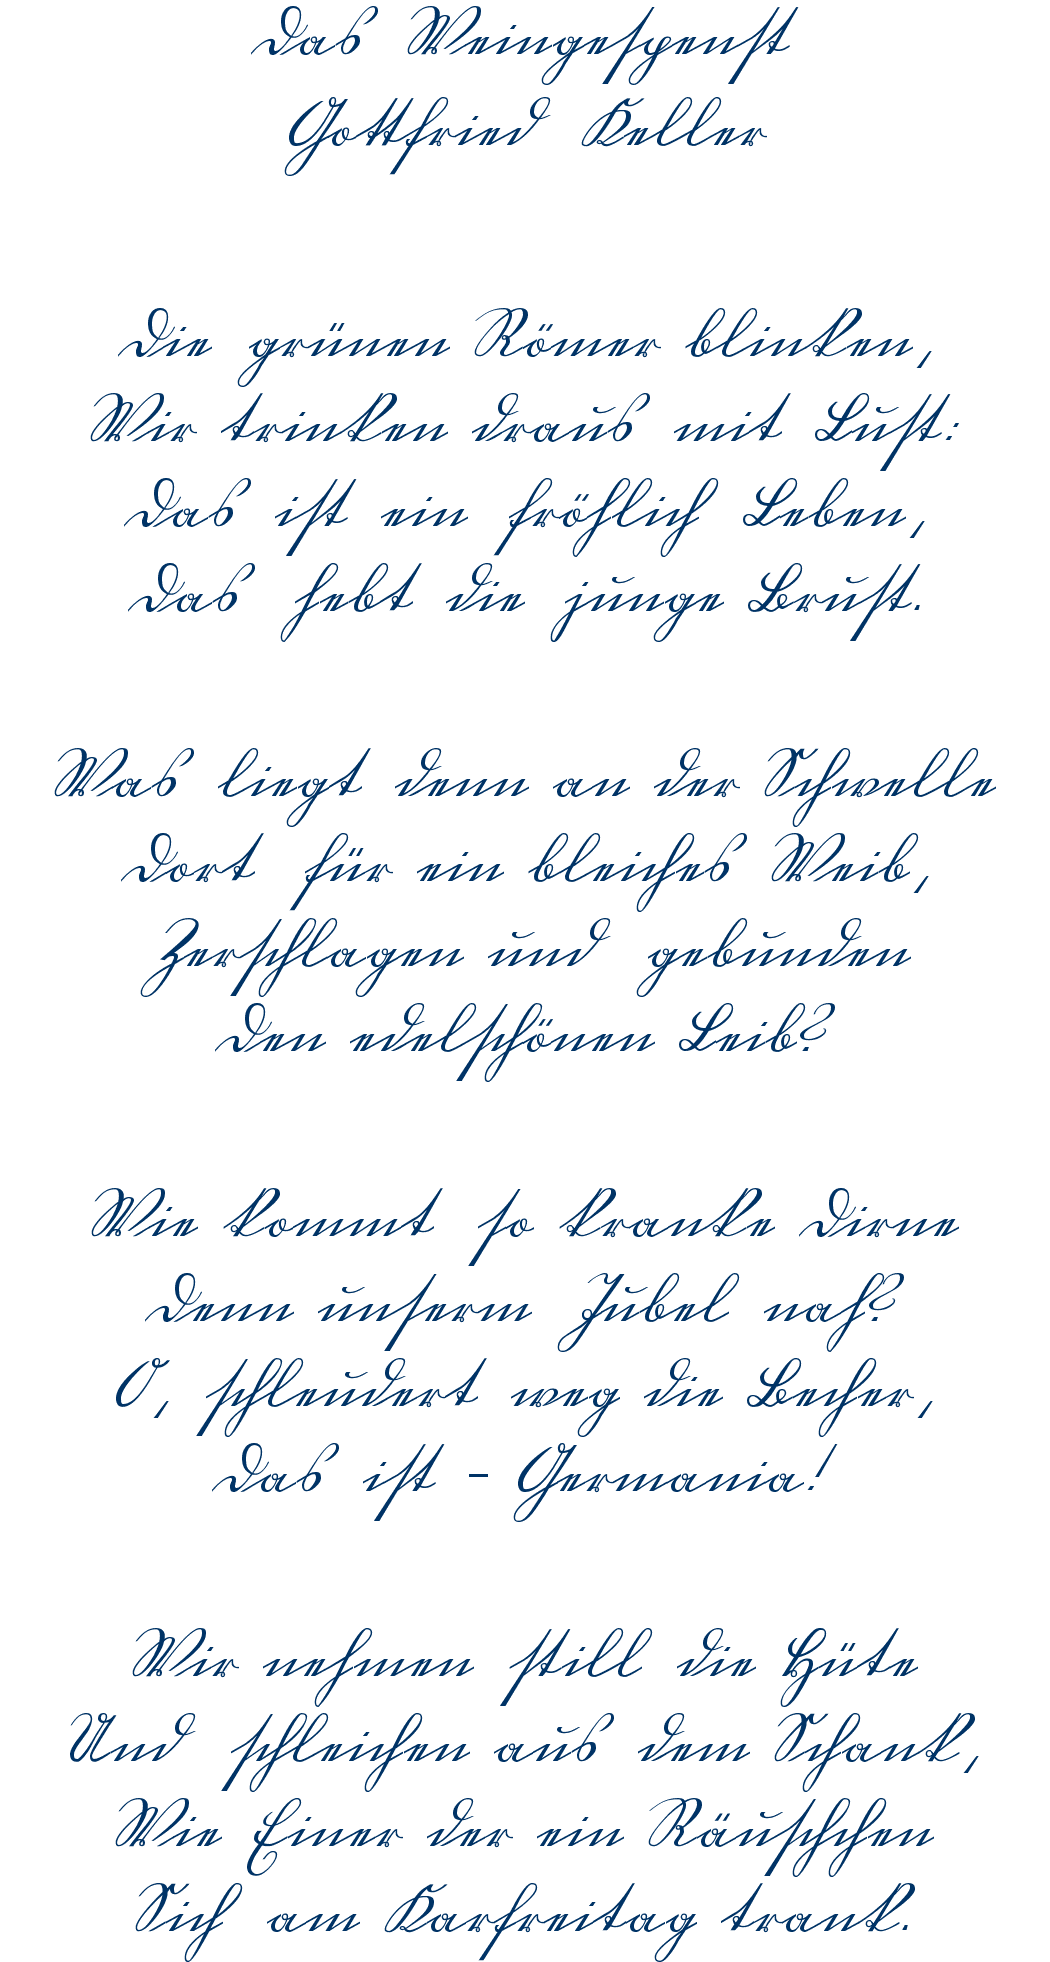 Das Weingespenst
Gottfried Keller
Die grünen Römer blinken,
Wir trinken draus mit Lust:
Das ist ein fröhlich Leben,
Das hebt die junge Brust.
Was liegt denn an der Schwelle
Dort für ein bleiches Weib,
Zerschlagen und gebunden
Den edelschönen Leib?
Wie kommt so kranke Dirne
Denn unserm Jubel nah?
O, schleudert weg die Becher,
Das ist - Germania!
Wir nehmen still die Hüte
Und schleichen aus dem Schank,
Wie Einer der ein Räuschchen
Sich am Karfreitag trank.